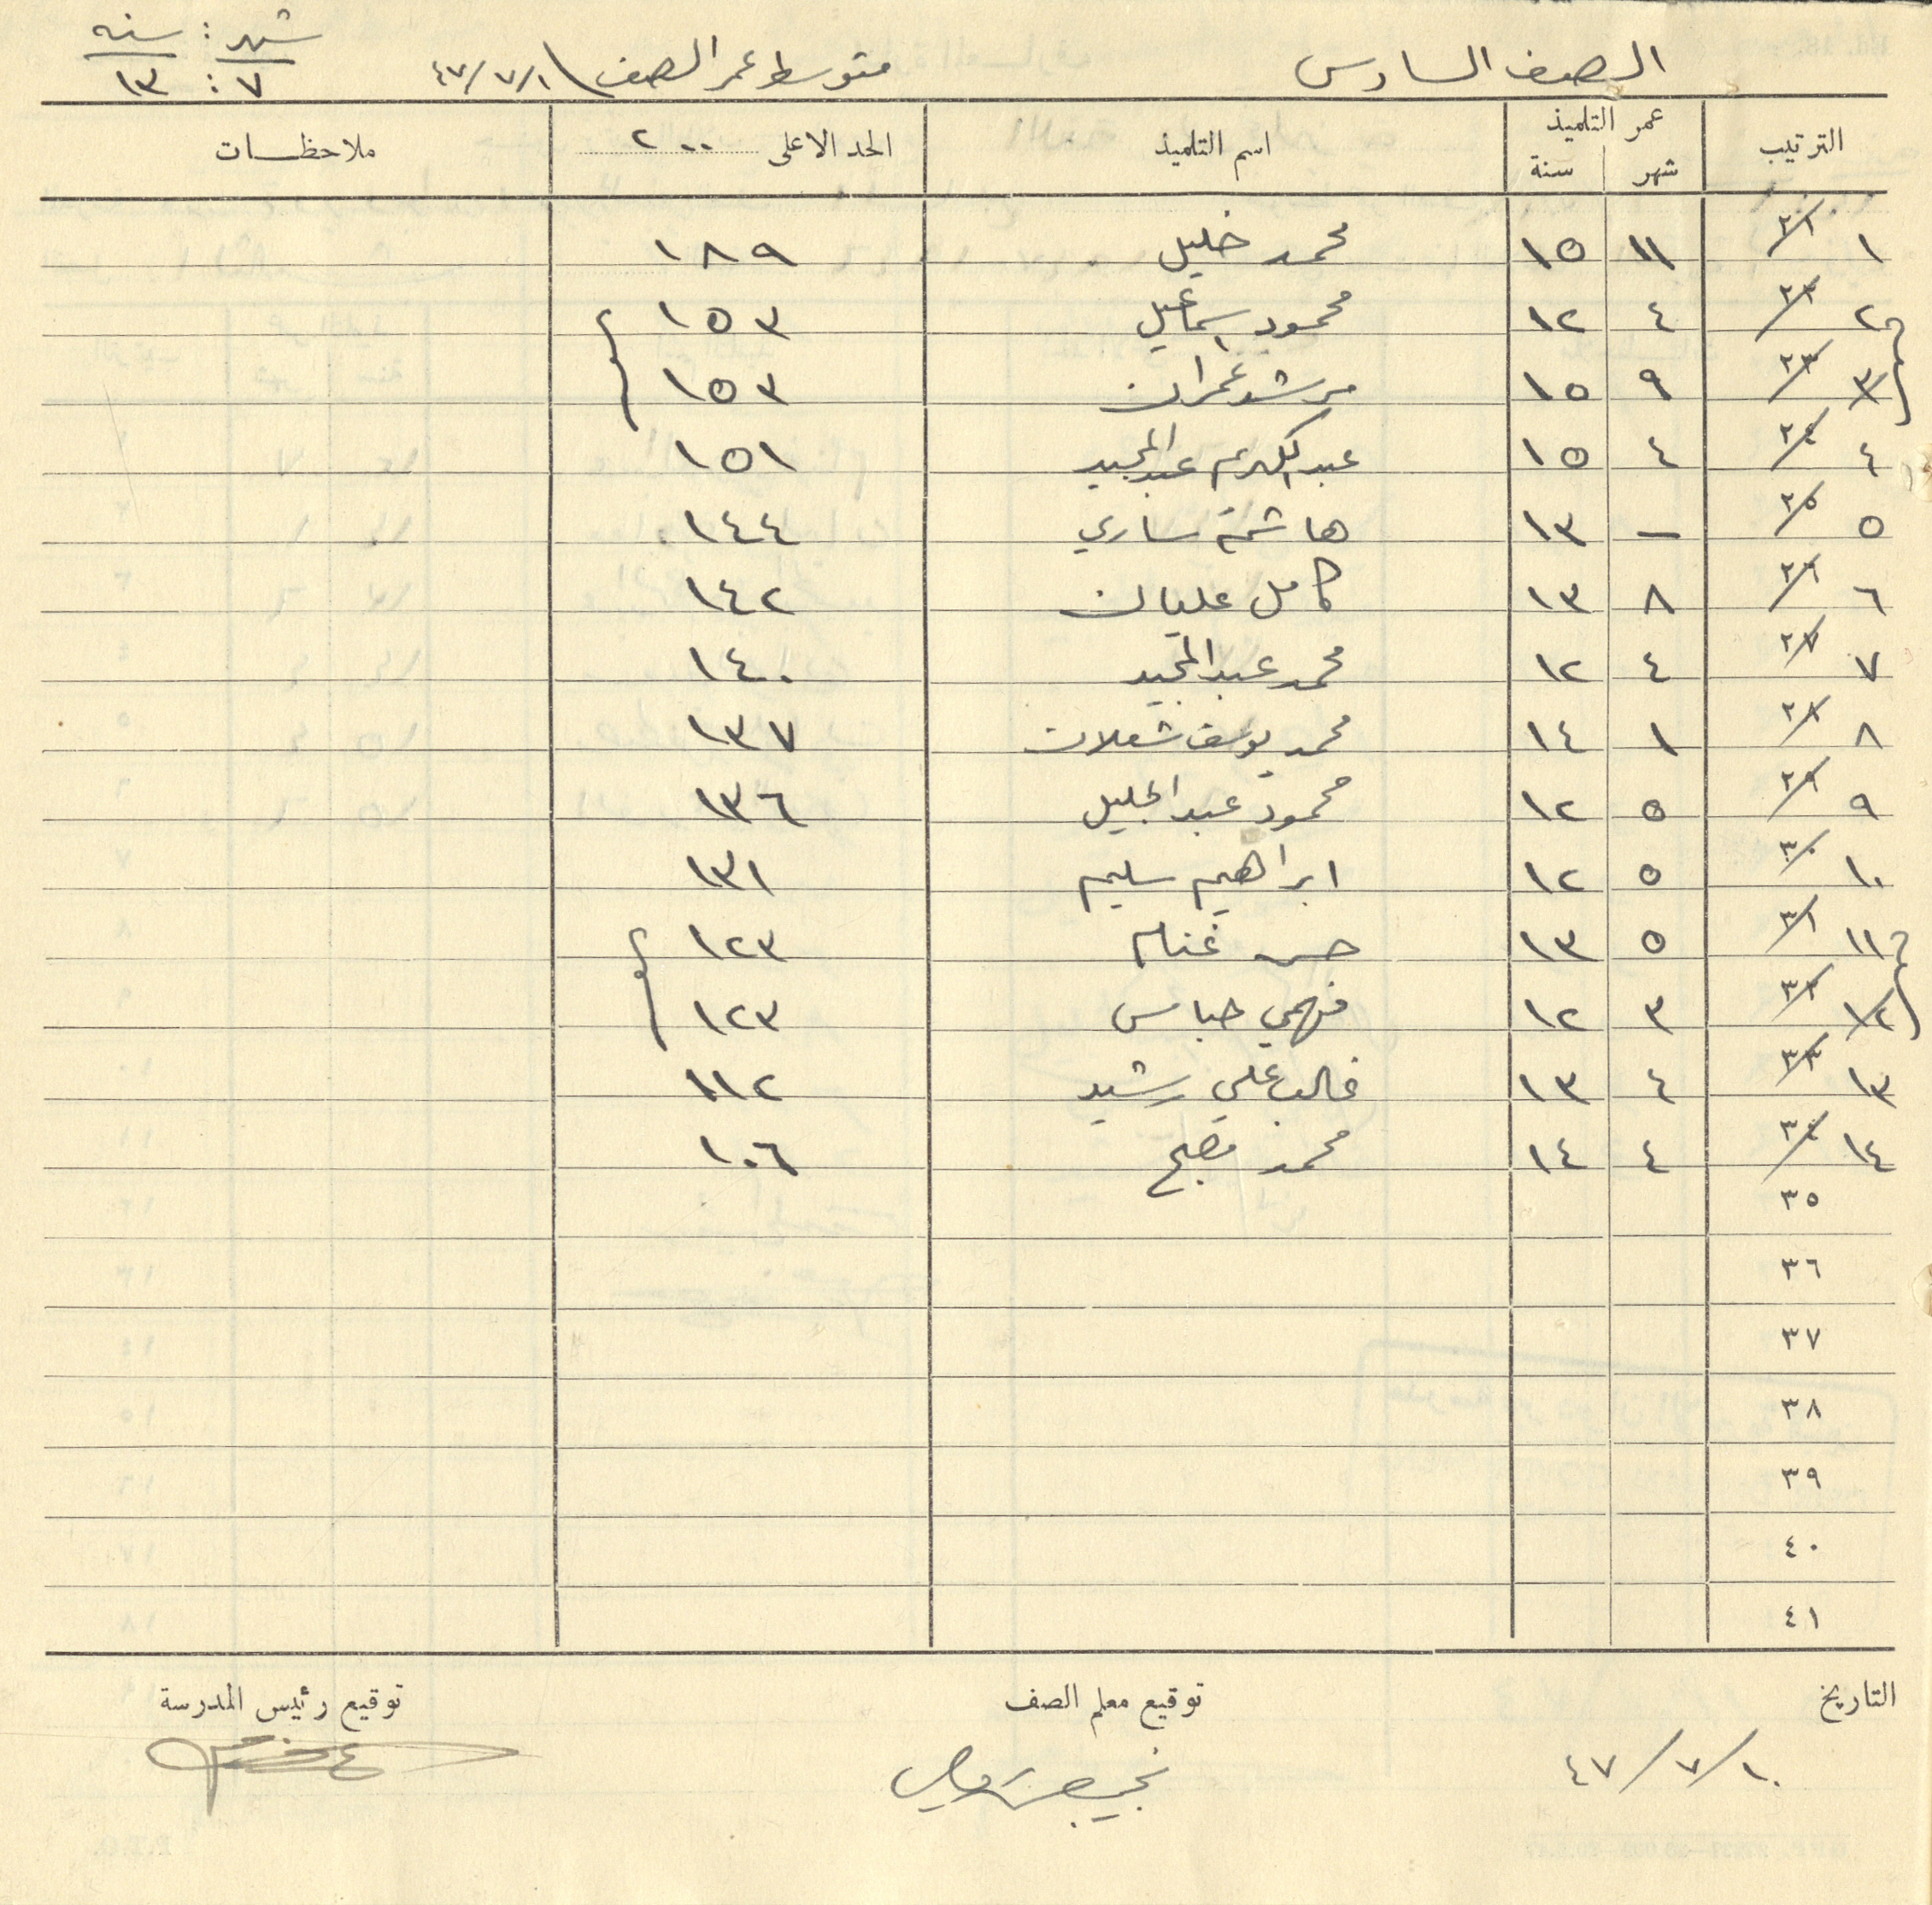 الصف السادس متوسط عمر الصف ١/٧/٤٧ شهر : سنه
٧ : ١٣
الترتيب عمر التلميذ اسم التلميذ الحد الاعلى ٢٠٠ ملاحظات
شهر سنة
١ ٢١ ١١ ١٥ محمد خليل ١٨٩
٢ ٢٢ ٤ ١٢ محمود اسماعيل ١٥٣
٣ ٢٣ ٩ ١٥ مرشد عمران ١٥٣
٤ ٢٤ ٤ ١٥ عبد الكريم عبد المجيد ١٥١
٥ ٢٥ – ١٣ هاشم ساري ١٤٤
٦ ٢٦ ٨ ١٣ كامل عليان ١٤٢
٧ ٢٧ ٤ ١٢ محمد عبد المجيد ١٤٠
٨ ٢٨ ١ ١٤ محمد يوسف شعلان ١٣٧
٩ ٢٩ ٥ ١٢ محمود عبد الجليل ١٣٦
١٠ ٣٠ ٥ ١٢ ابراهيم سليم ١٣١
١١ ٣١ ٥ ١٣ حسن غنام ١٢٣
١٢ ٣٢ ٣ ١٢ فهمي حباس ١٢٣
١٣ ٣٣ ٤ ١٣ غالب علي رشيد ١١٢
١٤ ٣٤ ٤ ١٤ محمد مصبح ١٠٦
٣٥
٣٦
٣٧
٣٨
٣٩
٤٠
٤١
التاريخ توقيع معلم الصف توقيع رئيس المدرسة
١٠/٧/٤٧